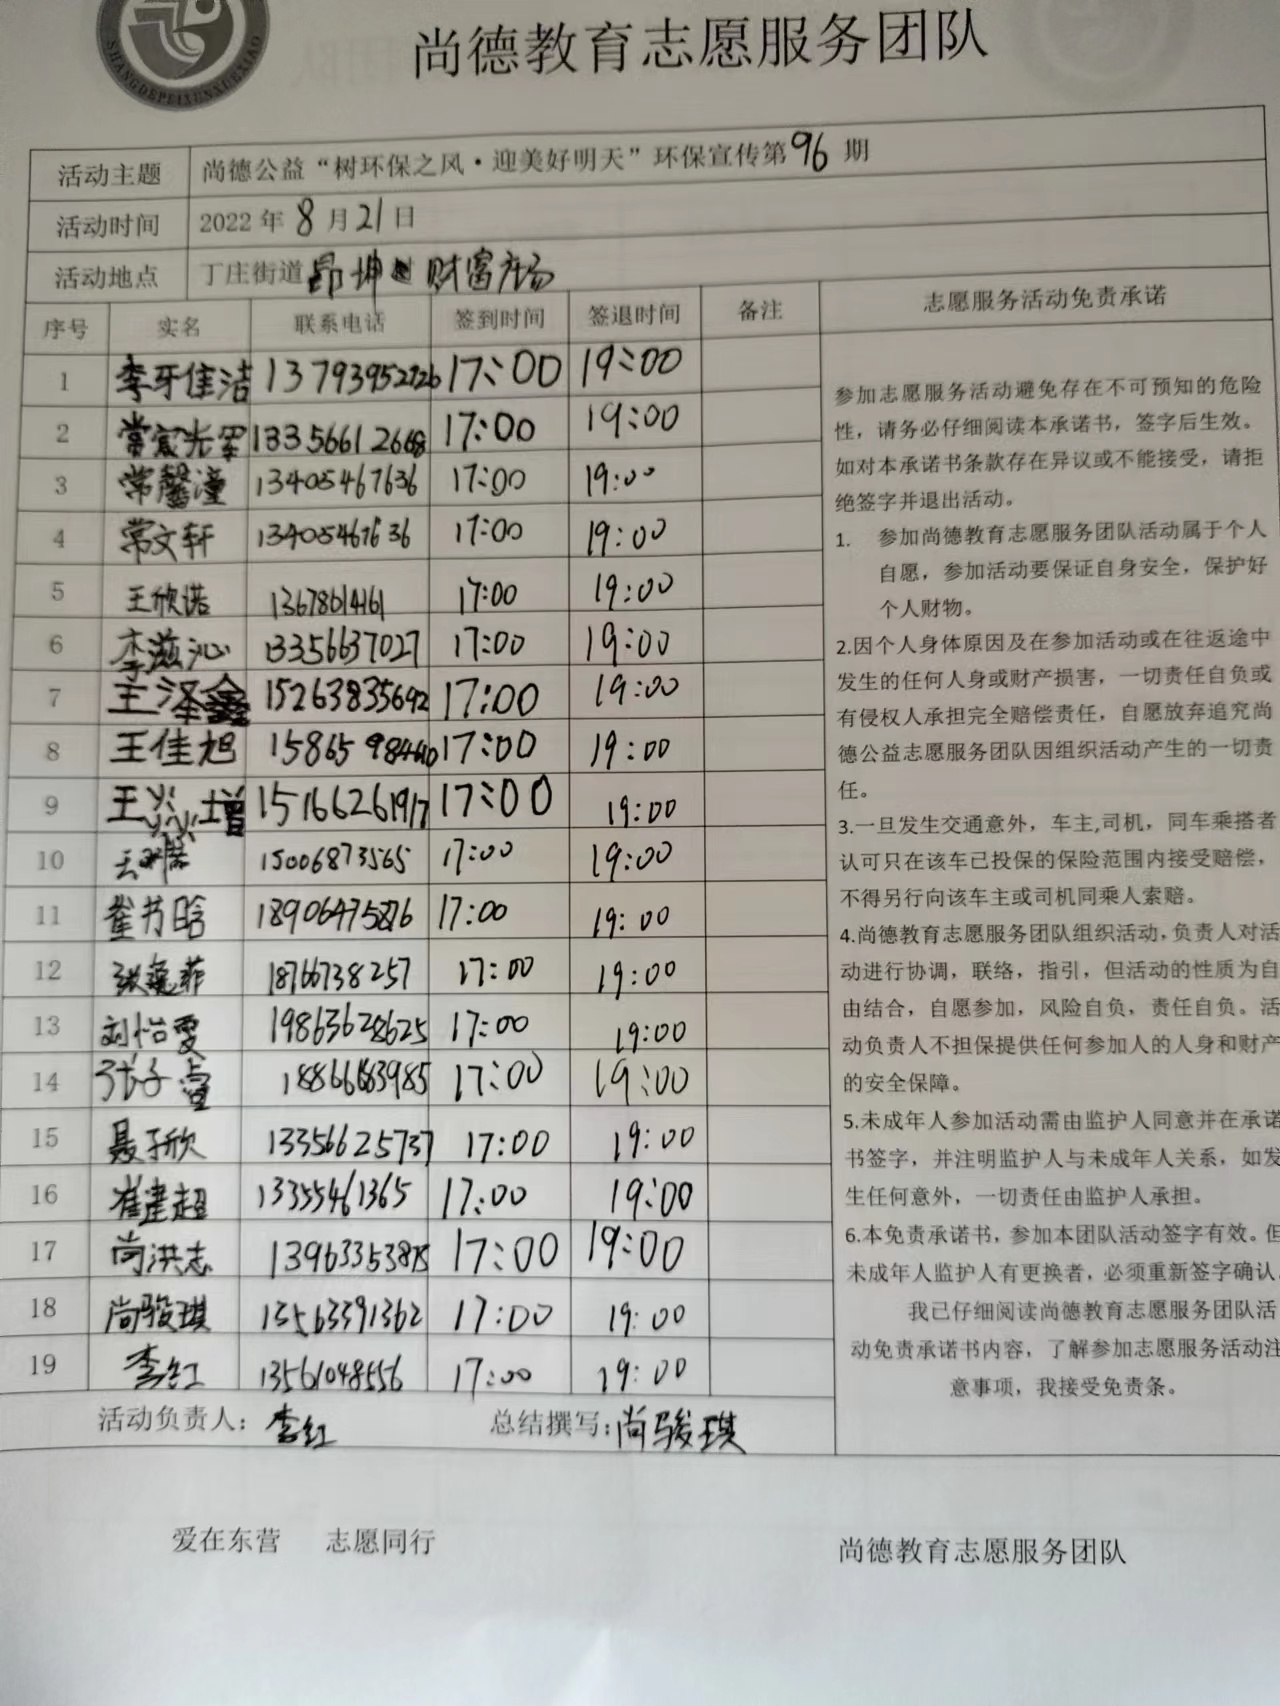 SHANGDEPEIXUNXUEXIAO
尚德教育志愿服务团队
活动主题 尚德公益“树环保之风·迎美好明天”环保宣传第96期
活动时间 2022年8月21日
活动地点 丁庄街道昂坤 财富广场
序号 实名 联系电话 签到时间 签退时间 备注
1 李牙佳洁 17:00 19:00
2 13356612668 17:00 19:00
3 常馨潼 13405467636 17:00 19:00
4 常文轩 13405467636 17:00 19:00
5 王欣诺 13678614161 17:00 19:00
6 李滋沁 13356637027 17:00 19:00
7 王泽鑫 15263835692 17:00 19:00
8 王佳旭 17:00 19:00
9 王 增 15166261917 17:00 19:00
10 15006873565 17:00 19:00
11 崔书晗 17:00 19:00
12 张 菲 18766738257 17:00 19:00
13 刘怡雯 19863628625 17:00 19:00
14 张子萱 17:00 19:00
15 聂子欣 13356625737 17:00 19:00
16 崔建超 13355461365 17:00 19:00
17 尚洪志 17:00 19:00
18 尚骏琪 13563391362 17:00 19:00
19 李红 13561048556 17:00 19:00
活动负责人：李红 总结撰写：尚骏琪
志愿服务活动免责承诺
参加志愿服务活动避免存在不可预知的危险
性，请务必仔细阅读本承诺书，签字后生效。
如对本承诺书条款存在异议或不能接受，请拒
绝签字并退出活动。
1. 参加尚德教育志愿服务团队活动属于个人
自愿，参加活动要保证自身安全，保护好
个人财物。
2.因个人身体原因及在参加活动或在往返途中
发生的任何人身或财产损害，一切责任自负或
有侵权人承担完全赔偿责任，自愿放弃追究尚
德公益志愿服务团队因组织活动产生的一切责
任。
3.一旦发生交通意外，车主,司机，同车乘搭者
认可只在该车已投保的保险范围内接受赔偿，
不得另行向该车主或司机同乘人索赔。
4.尚德教育志愿服务团队组织活动，负责人对活
动进行协调，联络，指引，但活动的性质为自
由结合，自愿参加，风险自负，责任自负。活
动负责人不担保提供任何参加人的人身和财产
的安全保障。
5.未成年人参加活动需由监护人同意并在承诺
书签字，并注明监护人与未成年人关系，如发
生任何意外，一切责任由监护人承担。
6.本免责承诺书，参加本团队活动签字有效。但
未成年人监护人有更换者，必须重新签字确认。
我已仔细阅读尚德教育志愿服务团队活
动免责承诺书内容，了解参加志愿服务活动注
意事项，我接受免责条。
爱在东营 志愿同行
尚德教育志愿服务团队